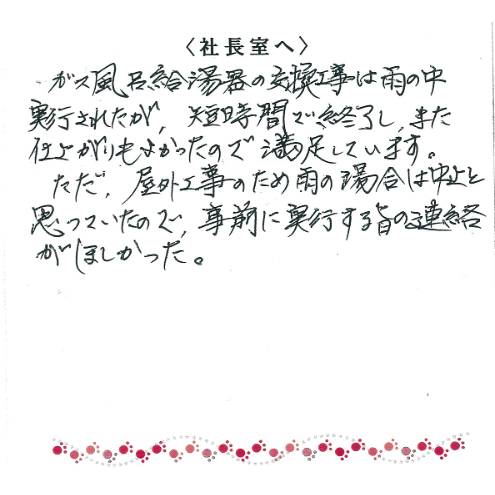 〈社長室へ〉
ガス風呂給湯器の交換工事は雨の中
実行されたが、短時間で終了し、また
仕上がりもよかったので満足しています。
ただ、屋外工事のため雨の場合は中止と
思っていたので、事前に実行する旨の連絡
がほしかった。